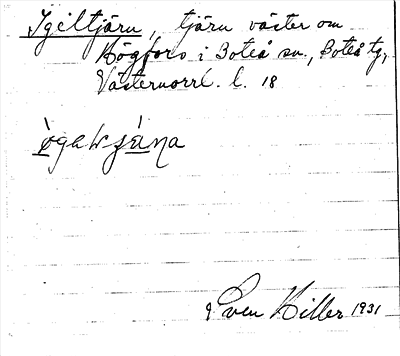 Igeltjärn, tjärn väster om
Högfors i Boteå sn., Boteå tg,
Västernorrl. l. 18
Sven Hiller 1931